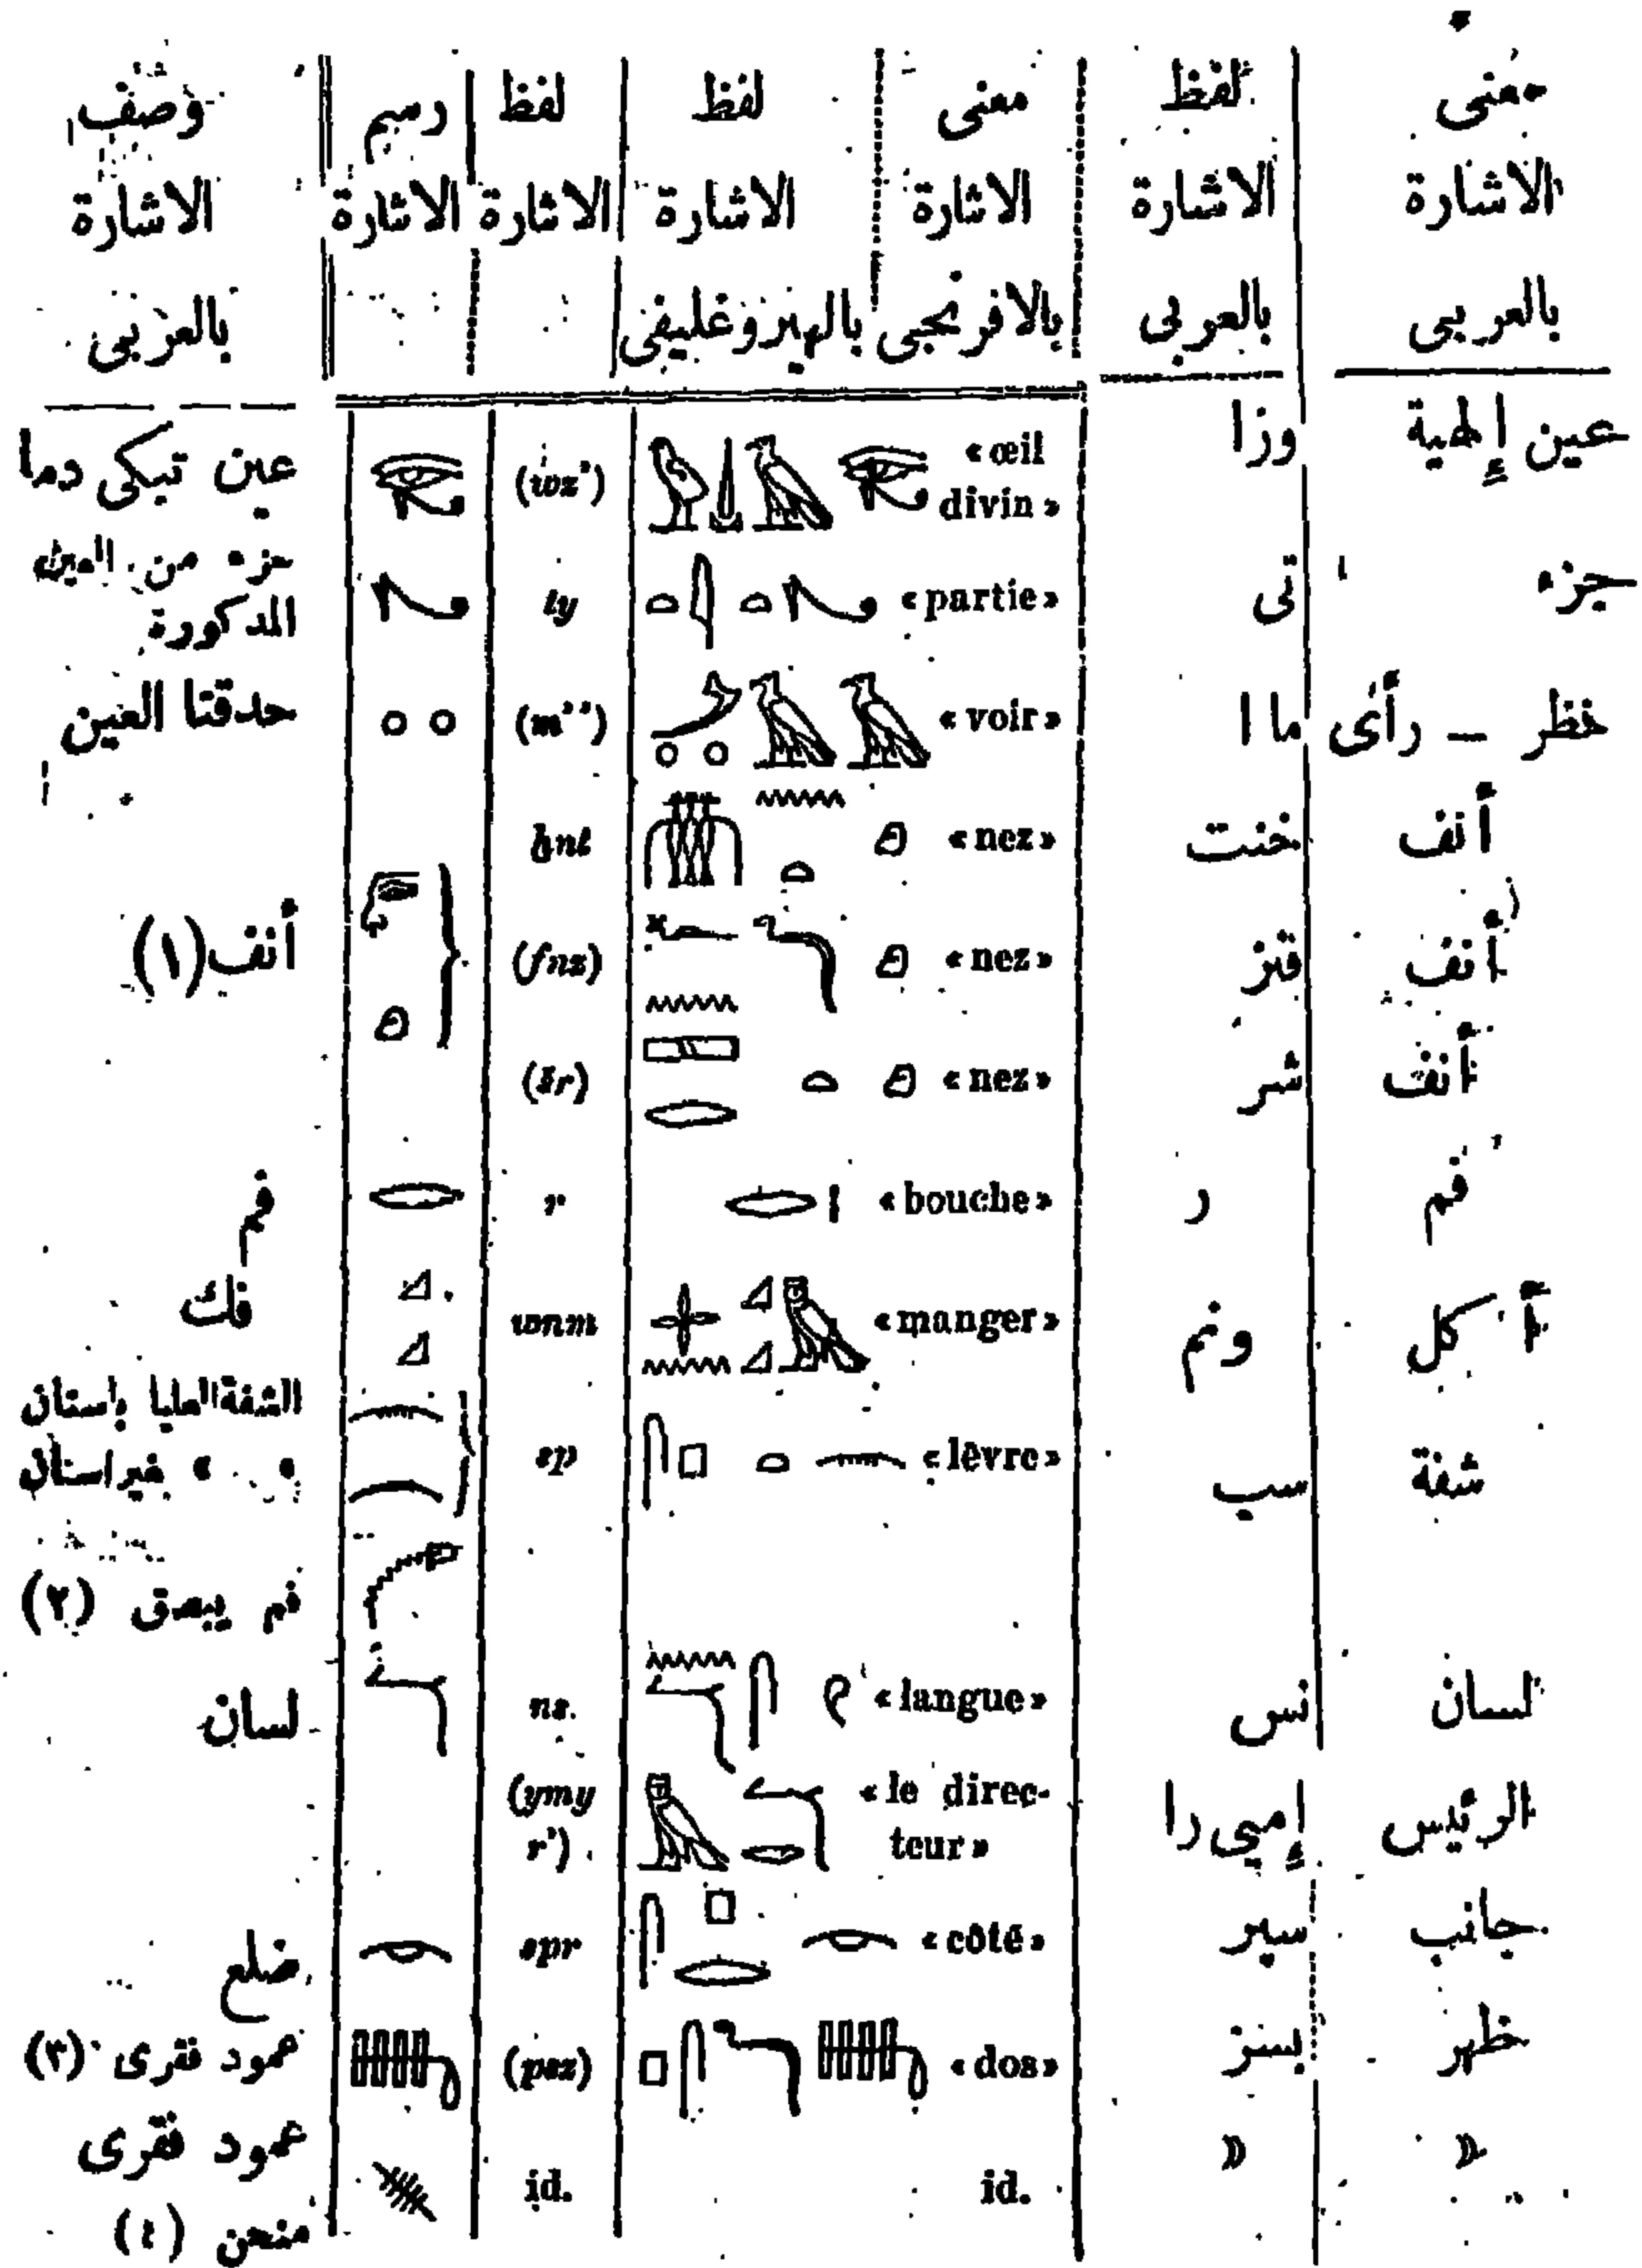 معنى لفظ معنى لفظ لفظ رسم وصف
الاشارة الاشارة الاشارة الاشارة الاشارة الاشارة الاشارة
بالعربى بالعربى بالافرنجى بالهيروغليفى بالعربى
عين إلهية وزا «œil divin» (wz’) عين تبكى دما
جزء تى «partie» ty جزء من العين
المذكورة
نظر – رأى ما ا «voir» (m’’) حدقتا العين
أنف خنت «nez» ḫnt
أنف فنز «nez» (fnz) أنف (١)
أنف شر «nez» (šr)
فم ر «bouche» r فم
أكل ونم «manger» wnm فك
شفة سب «lèvre» sp الشفة العليا باسنان
» » بغير اسنان
فم يبصق (٢)
لسان نس «langue» ns. لسان
الرئيس إمى را «le direc-
teur» (ymy
r’)
جانب سپر «côté» spr ضلع
ظهر بسز «dos» (psz) عمود فقرى (٣)
» » id. id. عمود فقرى
منحن (٤)